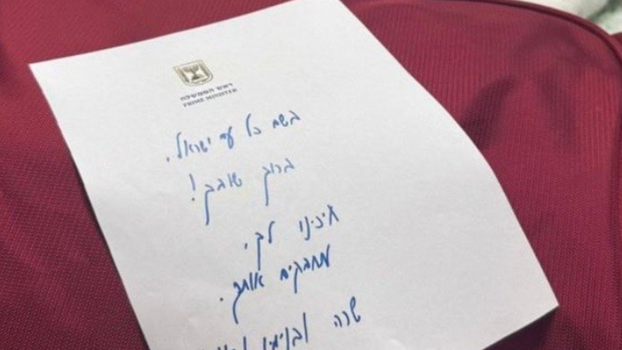 ראש הממשלה
PRIME MINISTER
בשם כל עם ישראל,
ברוך שובך!
חיכינו לך,
מחבקים אותך.
שרה ובנימין